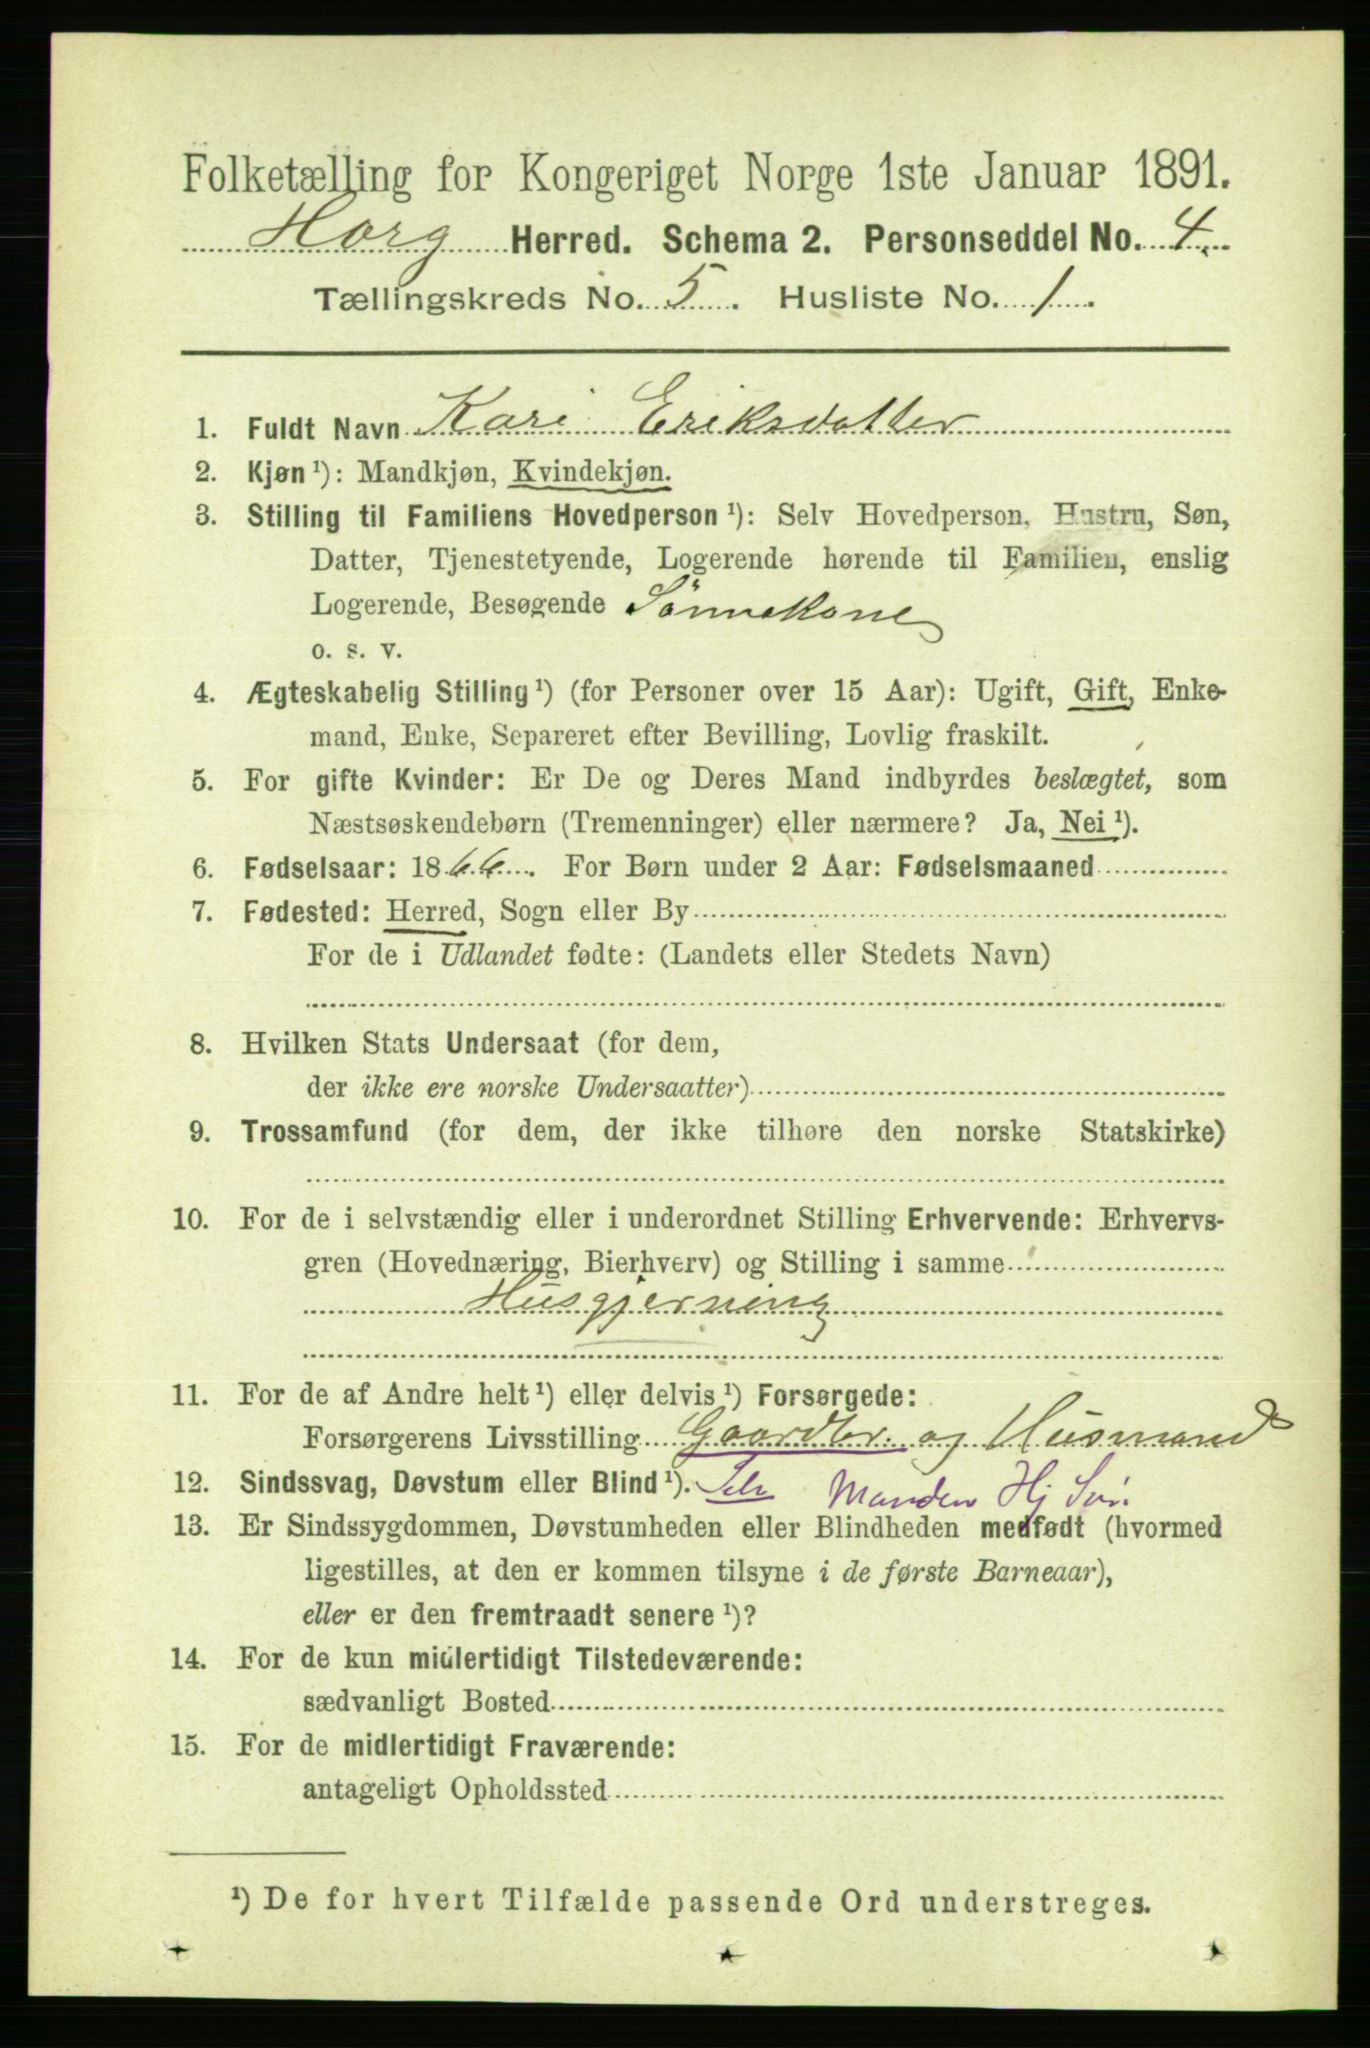 Folketælling for Kongeriget Norge 1ste Januar 1891.
Horg Herred. Schema 2. Personseddel No. 4.
Tællingskreds No. 5. Husliste No. 1.
1. Fuldt Navn Kari Eriksdatter
2. Kjøn ¹): Mandkjøn, Kvindekjøn.
3. Stilling til Familiens Hovedperson ¹): Selv Hovedperson, Hustru, Søn,
Datter, Tjenestetyende, Logerende hørende til Familien, enslig
Logerende, Besøgende Sönnekone
o. s. v.
4. Ægteskabelig Stilling ¹) (for Personer over 15 Aar): Ugift, Gift, Enke-
mand, Enke, Separeret efter Bevilling, Lovlig fraskilt.
5. For gifte Kvinder: Er De og Deres Mand indbyrdes beslægtet, som
Næstsøskendebørn (Tremenninger) eller nærmere? Ja, Nei ¹).
6. Fødselsaar: 1866. For Børn under 2 Aar: Fødselsmaaned
7. Fødested: Herred, Sogn eller By
For de i Udlandet fødte: (Landets eller Stedets Navn)
8. Hvilken Stats Undersaat (for dem,
der ikke ere norske Undersaatter)
9. Trossamfund (for dem, der ikke tilhøre den norske Statskirke)
10. For de i selvstændig eller i underordnet Stilling Erhvervende: Erhvervs-
gren (Hovednæring, Bierhverv) og Stilling i samme
Husgjerning
11. For de af Andre helt ¹) eller delvis ¹) Forsørgede:
Forsørgerens Livsstilling Gaardbr. og Husmand
12. Sindssvag, Døvstum eller Blind ¹). Manden Hj
13. Er Sindssygdommen, Døvstumheden eller Blindheden medfødt (hvormed
ligestilles, at den er kommen tilsyne i de første Barneaar),
eller er den fremtraadt senere ¹)?
14. For de kun midlertidigt Tilstedeværende:
sædvanligt Bosted
15. For de midlertidigt Fraværende:
antageligt Opholdssted
¹) De for hvert Tilfælde passende Ord understreges.